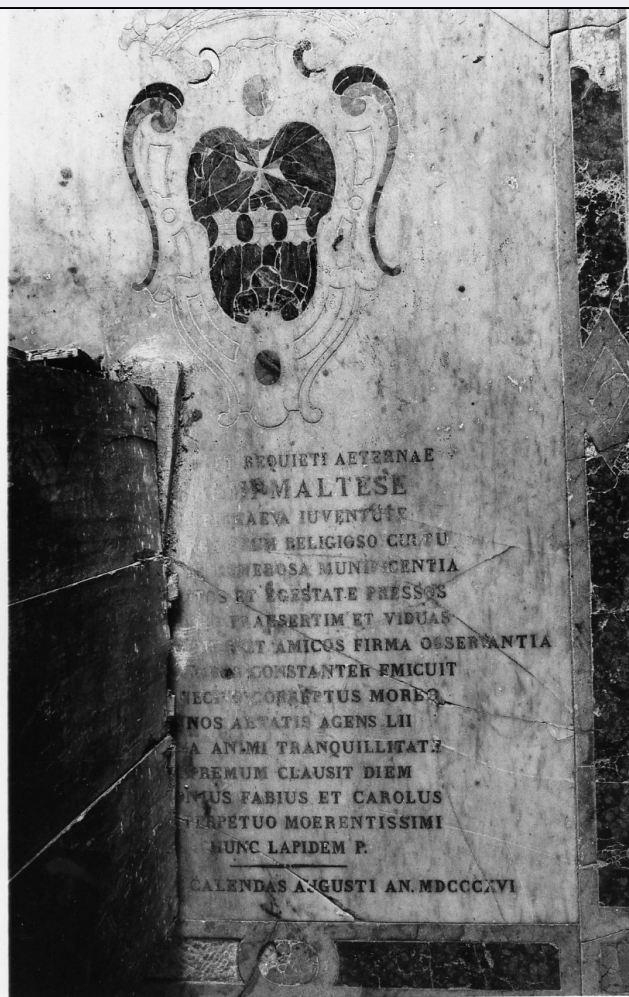 REQUIETI AETERNAE
MALTESE
IUVENTUTE
RELIGIOSO CULTU
MUNIFICENTIA
ET EGESTATE PRESSOS
PRAESERTIM ET VIDUAS
ET AMICOS FIRMA OSSERVANTIA
CONSTANTER EMICUIT
CORREPTUS MORBO
NOS AETATIS AGENS LII
A ANIMI TRANQUILLITATE
PREMUM CLAUSIT DIEM
NIUS FABIUS ET CAROLUS
PERPETUO MOERENTISSIMI
HUNC LAPIDEM P.
CALENDAS AUGUSTI AN. MDCCCXVI